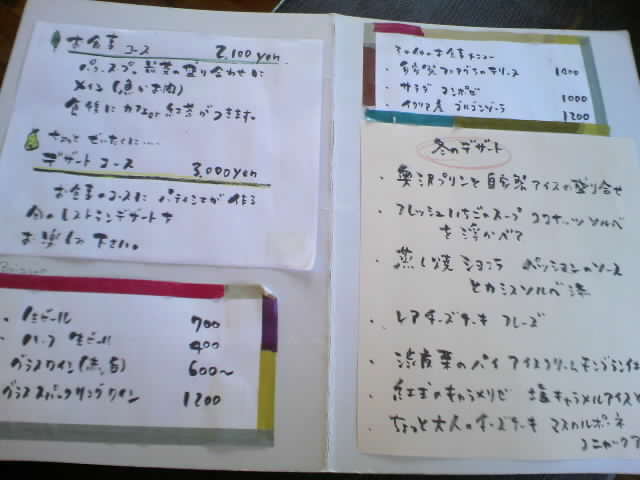 お食事コース 2,100yen
パン、スープ、前菜の盛り合わせに
メイン(魚かお肉)
食後にカフェor紅茶がつきます。
ちょっと ぜいたくに....
デザートコース 3,000yen
お食事のコースに パティシエが作る
旬のレストランデザートを
お楽しみ下さい。
生ビール 700
ハーフ 生ビール 400
グラスワイン(赤,白) 600〜
グラススパークリングワイン 1200
お食事メニュー
・自家製 のテリーヌ 1400
・サラダ コンポゼ 1000
・イタリア産 ゴルゴンゾーラ 1200
冬のデザート
・奥沢プリンと自家製アイスの盛り合せ
・フレッシュいちごのスープ ココナッツソルベ
を浮かべて
・蒸し焼ショコラ パッションのソース
とカシスソルベ添
・レアチーズケーキ フレーズ
・渋皮栗のパイ アイスクリームモンブラン仕
・紅玉のキャラメリゼ 塩キャラメルアイスと
・ちょっと大人のチーズケーキ マスカルポーネ